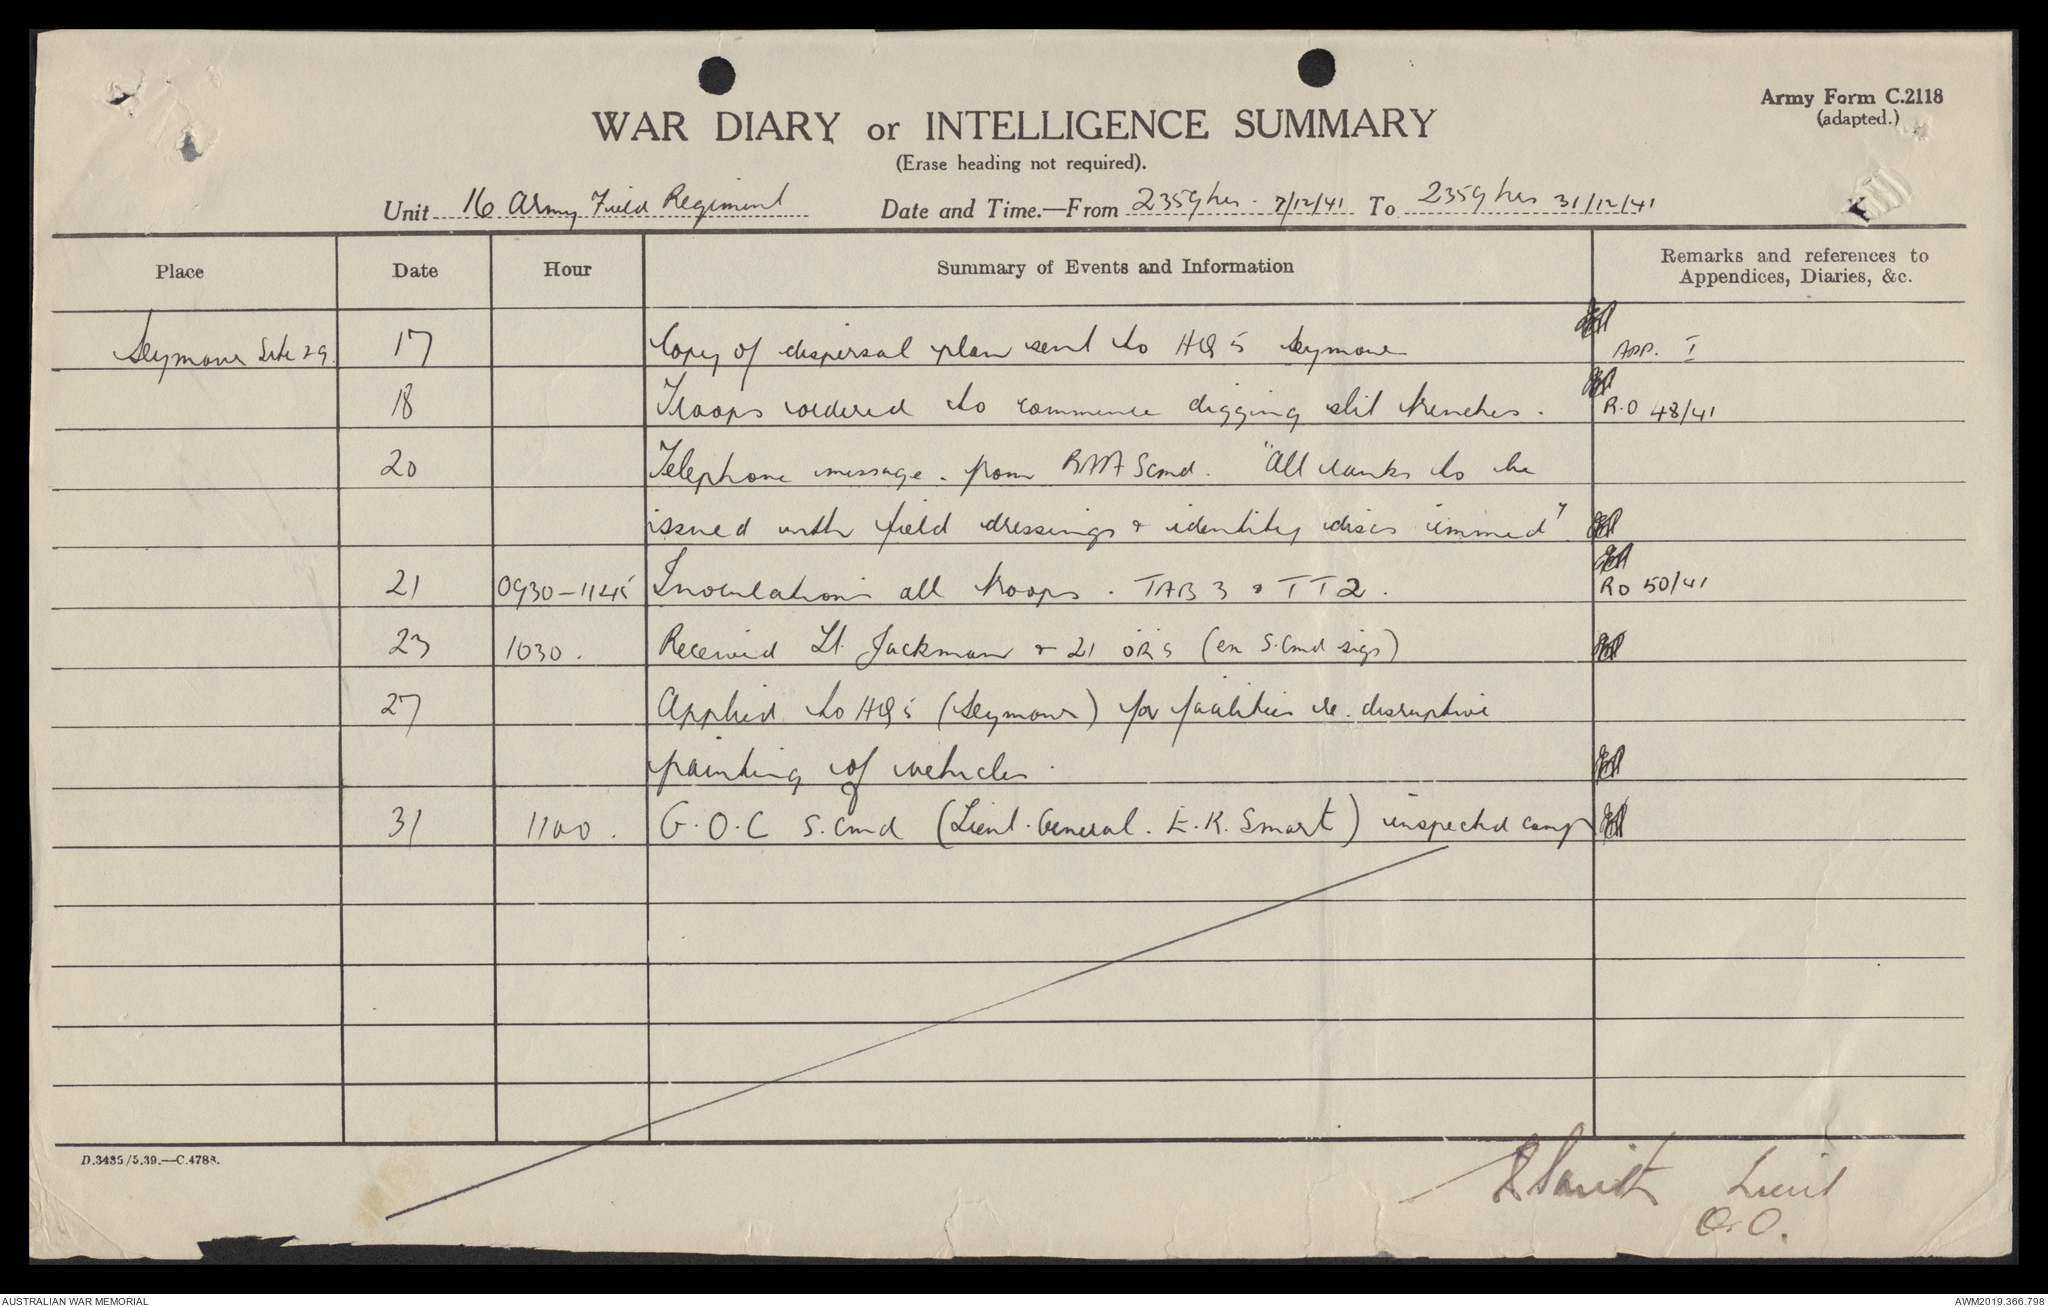 Army Form C.2118
(adapted.)
WAR DIARY or INTELLIGENCE SUMMARY
(Erase heading not required).
Unit 16 Army Field Regiment Date and Time.—From 2359 hrs. 7/12/41 To 2359 hrs 31/12/41
Place Date Hour Summary of Events and Information Remarks and references to Appendices, Diaries, &c.
Seymour Site 29. 17 Copy of dispersal plan sent to HQ 5 Seymour APP. I
18 Troops ordered to commence digging slit trenches. R.O 48/41
20 Telephone message. from Scmd. "All ranks to be
issued with field dressings & identity discs immed"
21 0930-1145 Inoculations all troops. TAB 3 & TT2. RO 50/41
23 1030. Received Lt. Jackman & 21 ORS (en S. Cmd sigs)
27 Applied to HQ 5 (Seymour) for facilities re. disruptive
painting of vehicles.
31 1100. G.O.C S. Cmd (Lieut. General. E.K. Smart) inspected camp
D.3435/5.39.—C.4788.
Smith Lieut
O.O.
AUSTRALIAN WAR MEMORIAL AWM2019.366.798